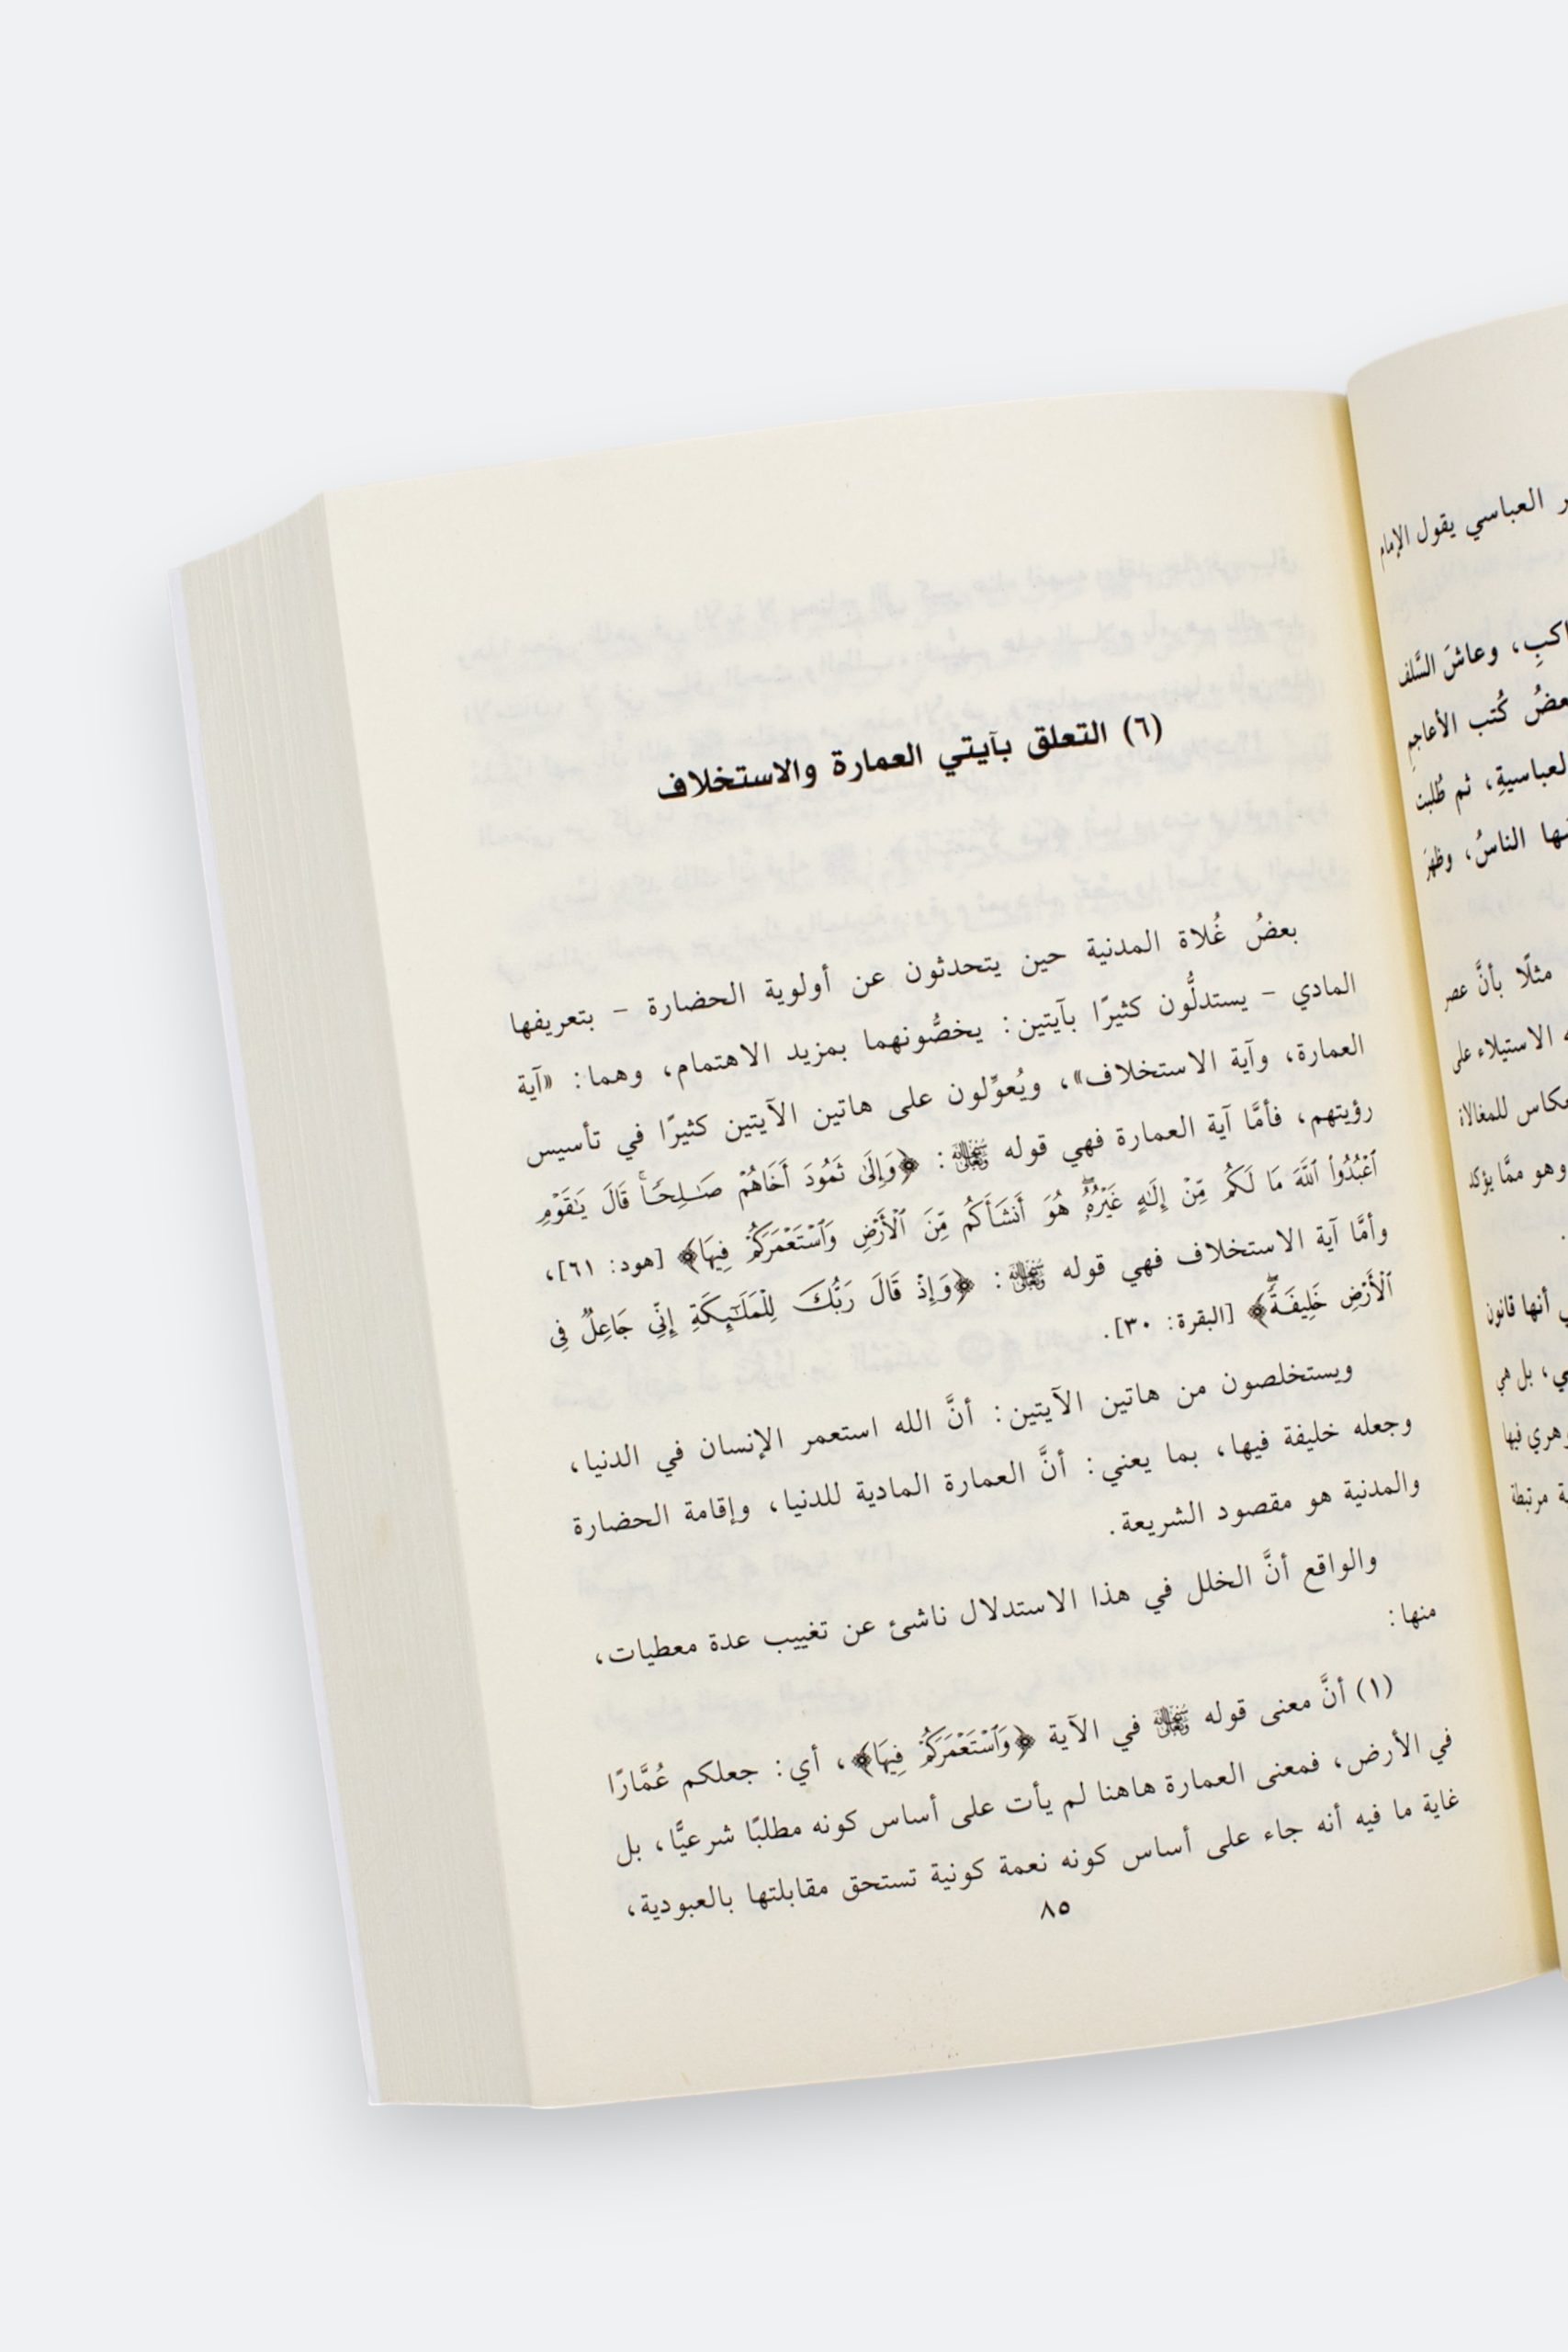 العباسي يقول الإمام
وعاشَ السَّلف
كُتب الأعاجمِ
ثم طُلبت
الناسُ، وظهرَ
مثلًا بأنَّ عصر
الاستيلاء على
للمغالاة
وهو ممَّا يؤكد
أنها قانون
بل هي
فيها
مرتبطة
(٦) التعلق بآيتي العمارة والاستخلاف
بعضُ غُلاة المدنية حين يتحدثون عن أولوية الحضارة – بتعريفها
المادي – يستدلُّون كثيرًا بآيتين: يخصُّونهما بمزيد الاهتمام، وهما: «آية
العمارة، وآية الاستخلاف»، ويُعوِّلون على هاتين الآيتين كثيرًا في تأسيس
رؤيتهم، فأمَّا آية العمارة فهي قوله سبحانه وتعالى: ﴿وَإِلَىٰ ثَمُودَ أَخَاهُمۡ صَٰلِحٗاۚ قَالَ يَٰقَوۡمِ
ٱعۡبُدُواْ ٱللَّهَ مَا لَكُم مِّنۡ إِلَٰهٍ غَيۡرُهُۥۖ هُوَ أَنشَأَكُم مِّنَ ٱلۡأَرۡضِ وَٱسۡتَعۡمَرَكُمۡ فِيهَا﴾ [هود: ٦١]،
وأمَّا آية الاستخلاف فهي قوله سبحانه وتعالى: ﴿وَإِذۡ قَالَ رَبُّكَ لِلۡمَلَٰٓئِكَةِ إِنِّي جَاعِلٞ فِي
ٱلۡأَرۡضِ خَلِيفَةٗۖ﴾ [البقرة: ٣٠].
ويستخلصون من هاتين الآيتين: أنَّ الله استعمر الإنسان في الدنيا،
وجعله خليفة فيها، بما يعني: أنَّ العمارة المادية للدنيا، وإقامة الحضارة
والمدنية هو مقصود الشريعة.
والواقع أنَّ الخلل في هذا الاستدلال ناشئ عن تغييب عدة معطيات،
منها:
(١) أنَّ معنى قوله سبحانه وتعالى في الآية ﴿وَٱسۡتَعۡمَرَكُمۡ فِيهَا﴾، أي: جعلكم عُمَّارًا
في الأرض، فمعنى العمارة هاهنا لم يأت على أساس كونه مطلبًا شرعيًّا، بل
غاية ما فيه أنه جاء على أساس كونه نعمة كونية تستحق مقابلتها بالعبودية،
٨٥